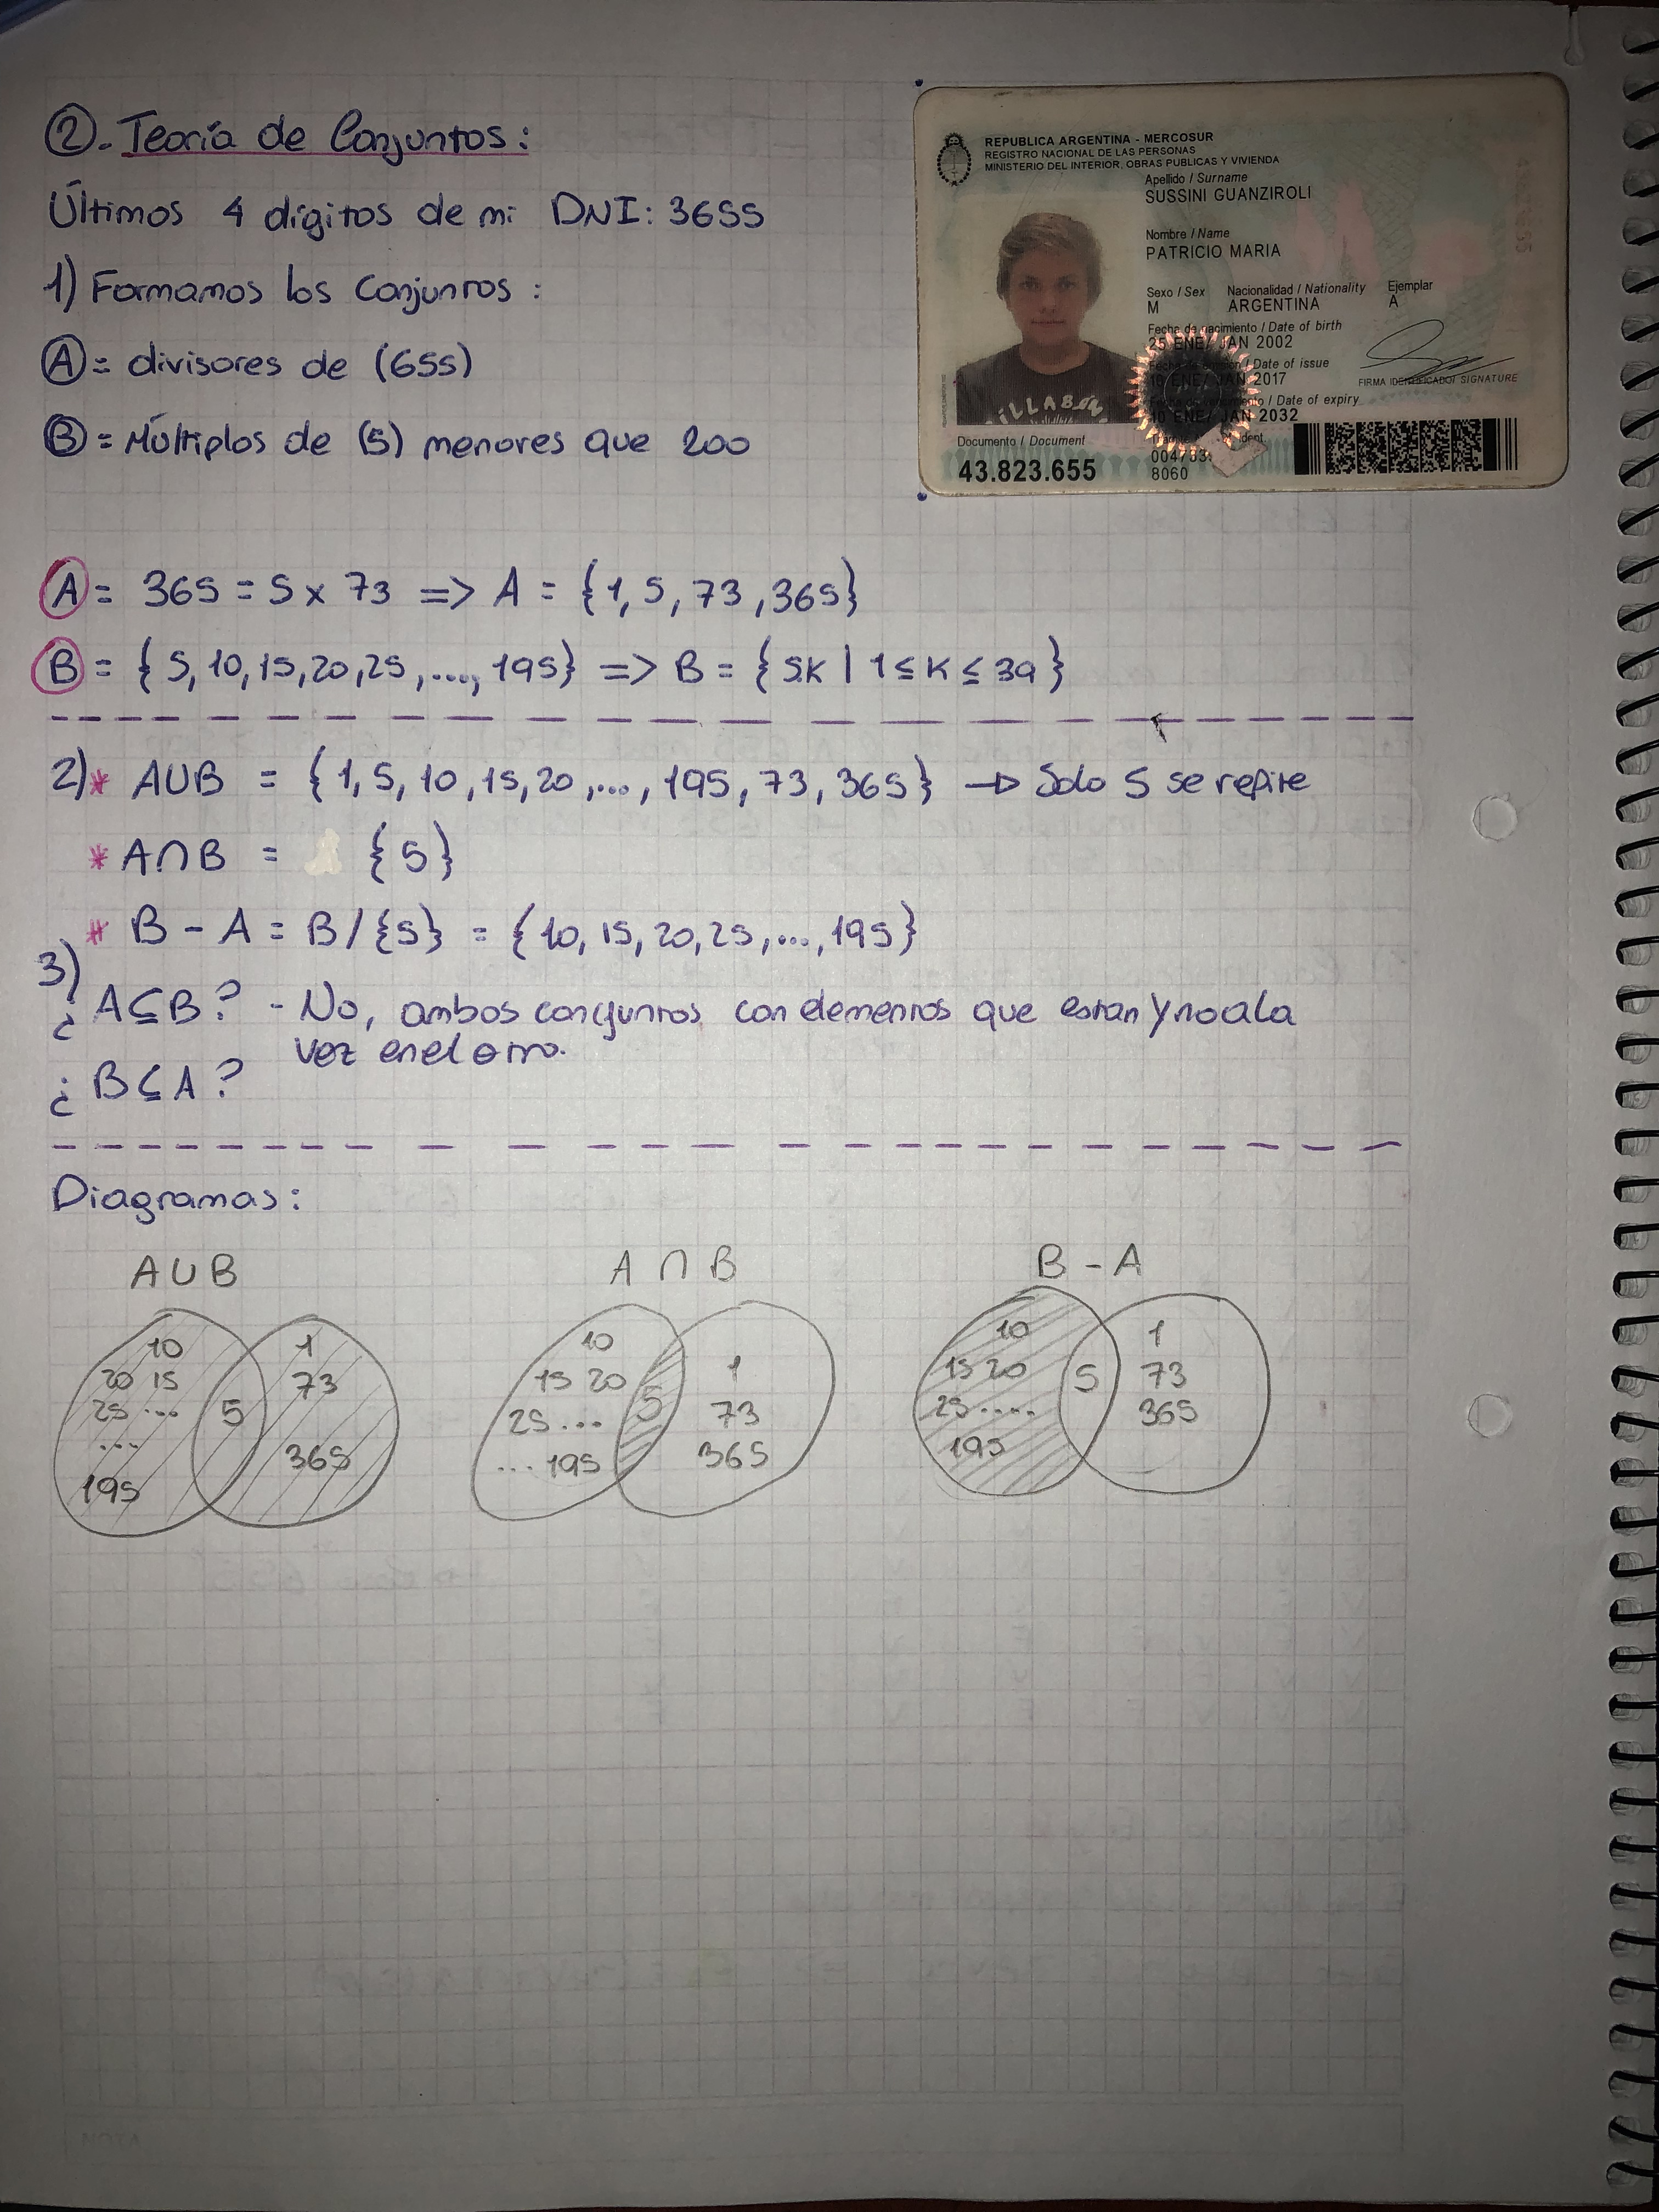 ②. Teoría de Conjuntos:
Últimos 4 dígitos de mi DNI: 3655
1) Formamos los Conjuntos:
Ⓐ = divisores de (655)
Ⓑ = Múltiplos de (5) menores que 200
REPUBLICA ARGENTINA - MERCOSUR
REGISTRO NACIONAL DE LAS PERSONAS
MINISTERIO DEL INTERIOR, OBRAS PUBLICAS Y VIVIENDA
Apellido / Surname
SUSSINI GUANZIROLI
Nombre / Name
PATRICIO MARIA
Sexo / Sex Nacionalidad / Nationality Ejemplar
M ARGENTINA A
Fecha de nacimiento / Date of birth
25 ENE/ JAN 2002
/ Date of issue
10 ENE/ JAN 2017
FIRMA IDENTIFICADO/ SIGNATURE
/ Date of expiry
10 ENE/ JAN 2032
Documento / Document
43.823.655
8060
BILLABONG
Ⓐ = 365 = 5 x 73 => A = {1, 5, 73, 365}
Ⓑ = {5, 10, 15, 20, 25, ..., 195} => B = {5K | 1 ≤ K ≤ 39}
2) * A∪B = {1, 5, 10, 15, 20, ..., 195, 73, 365} → Solo 5 se repite
* A∩B = {5}
* B - A = B / {5} = {10, 15, 20, 25, ..., 195}
3)
¿A⊆B? - No, ambos conjuntos con elementos que estan y no a la
vez en el otro.
¿B⊆A?
Diagramas:
A∪B A∩B B-A
10 1
20 15 73
25 ... 5
...
365
195
10
15 20 1
25... 5 73
...195 365
10 1
15 20 5 73
25..... 365
195